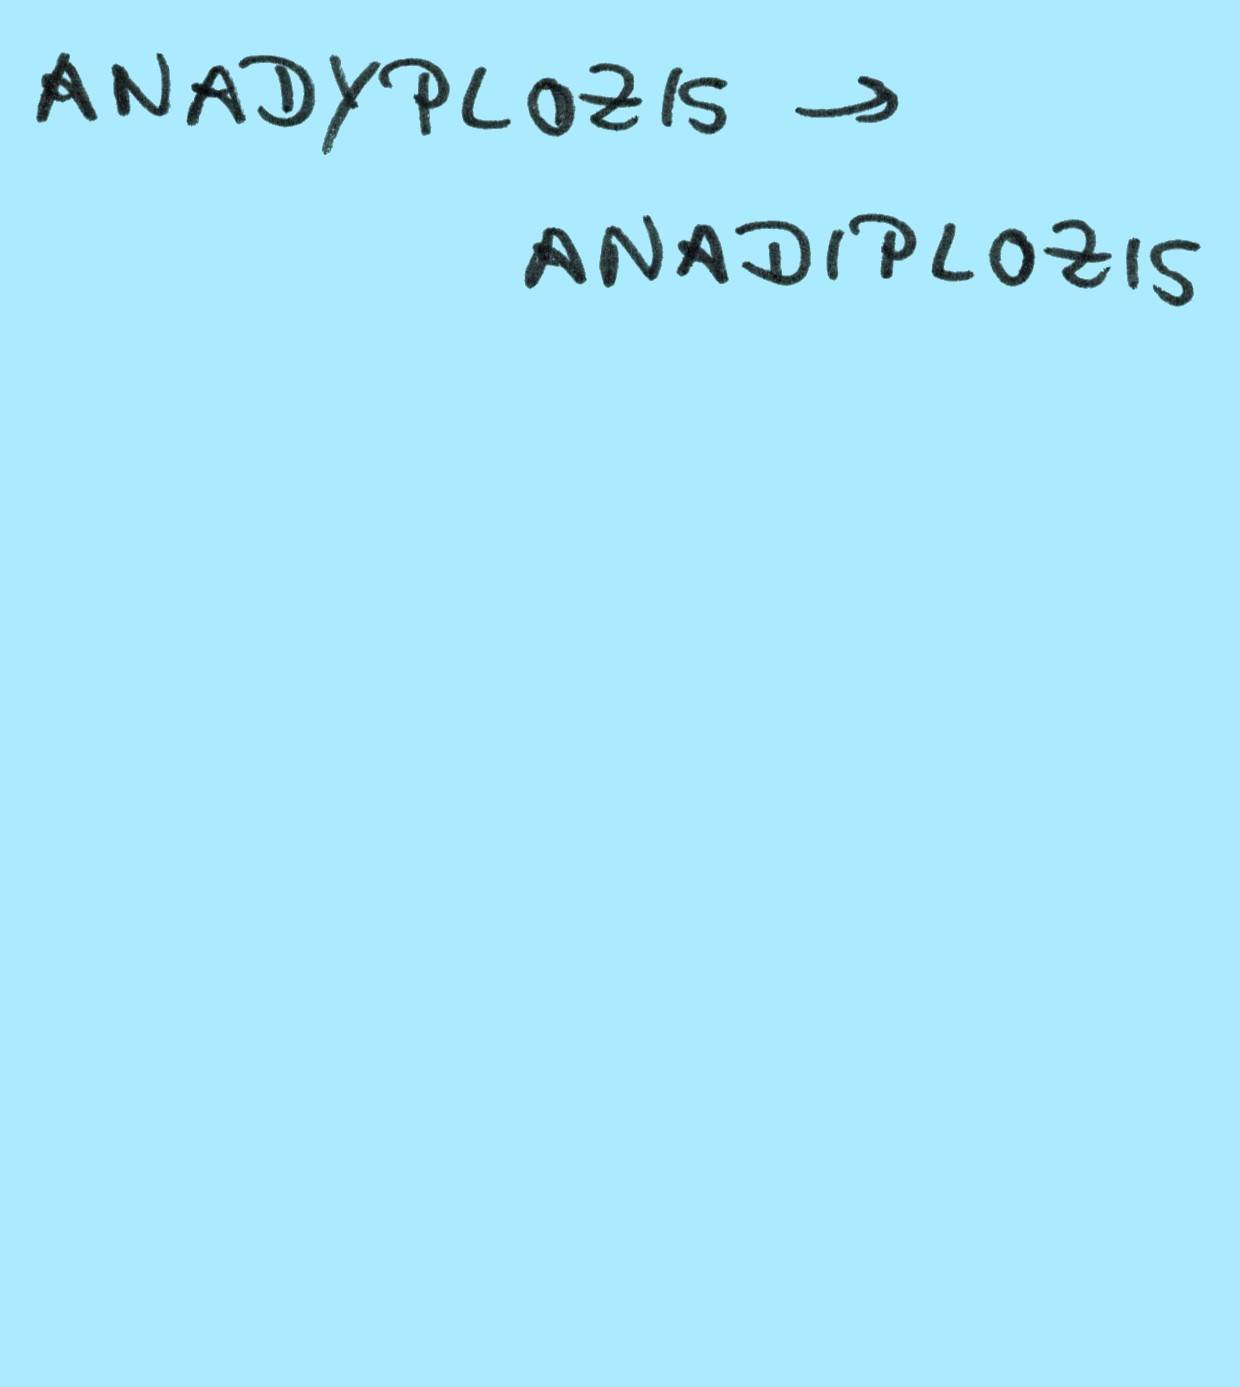 ANADYPLOZIS →
ANADIPLOZIS